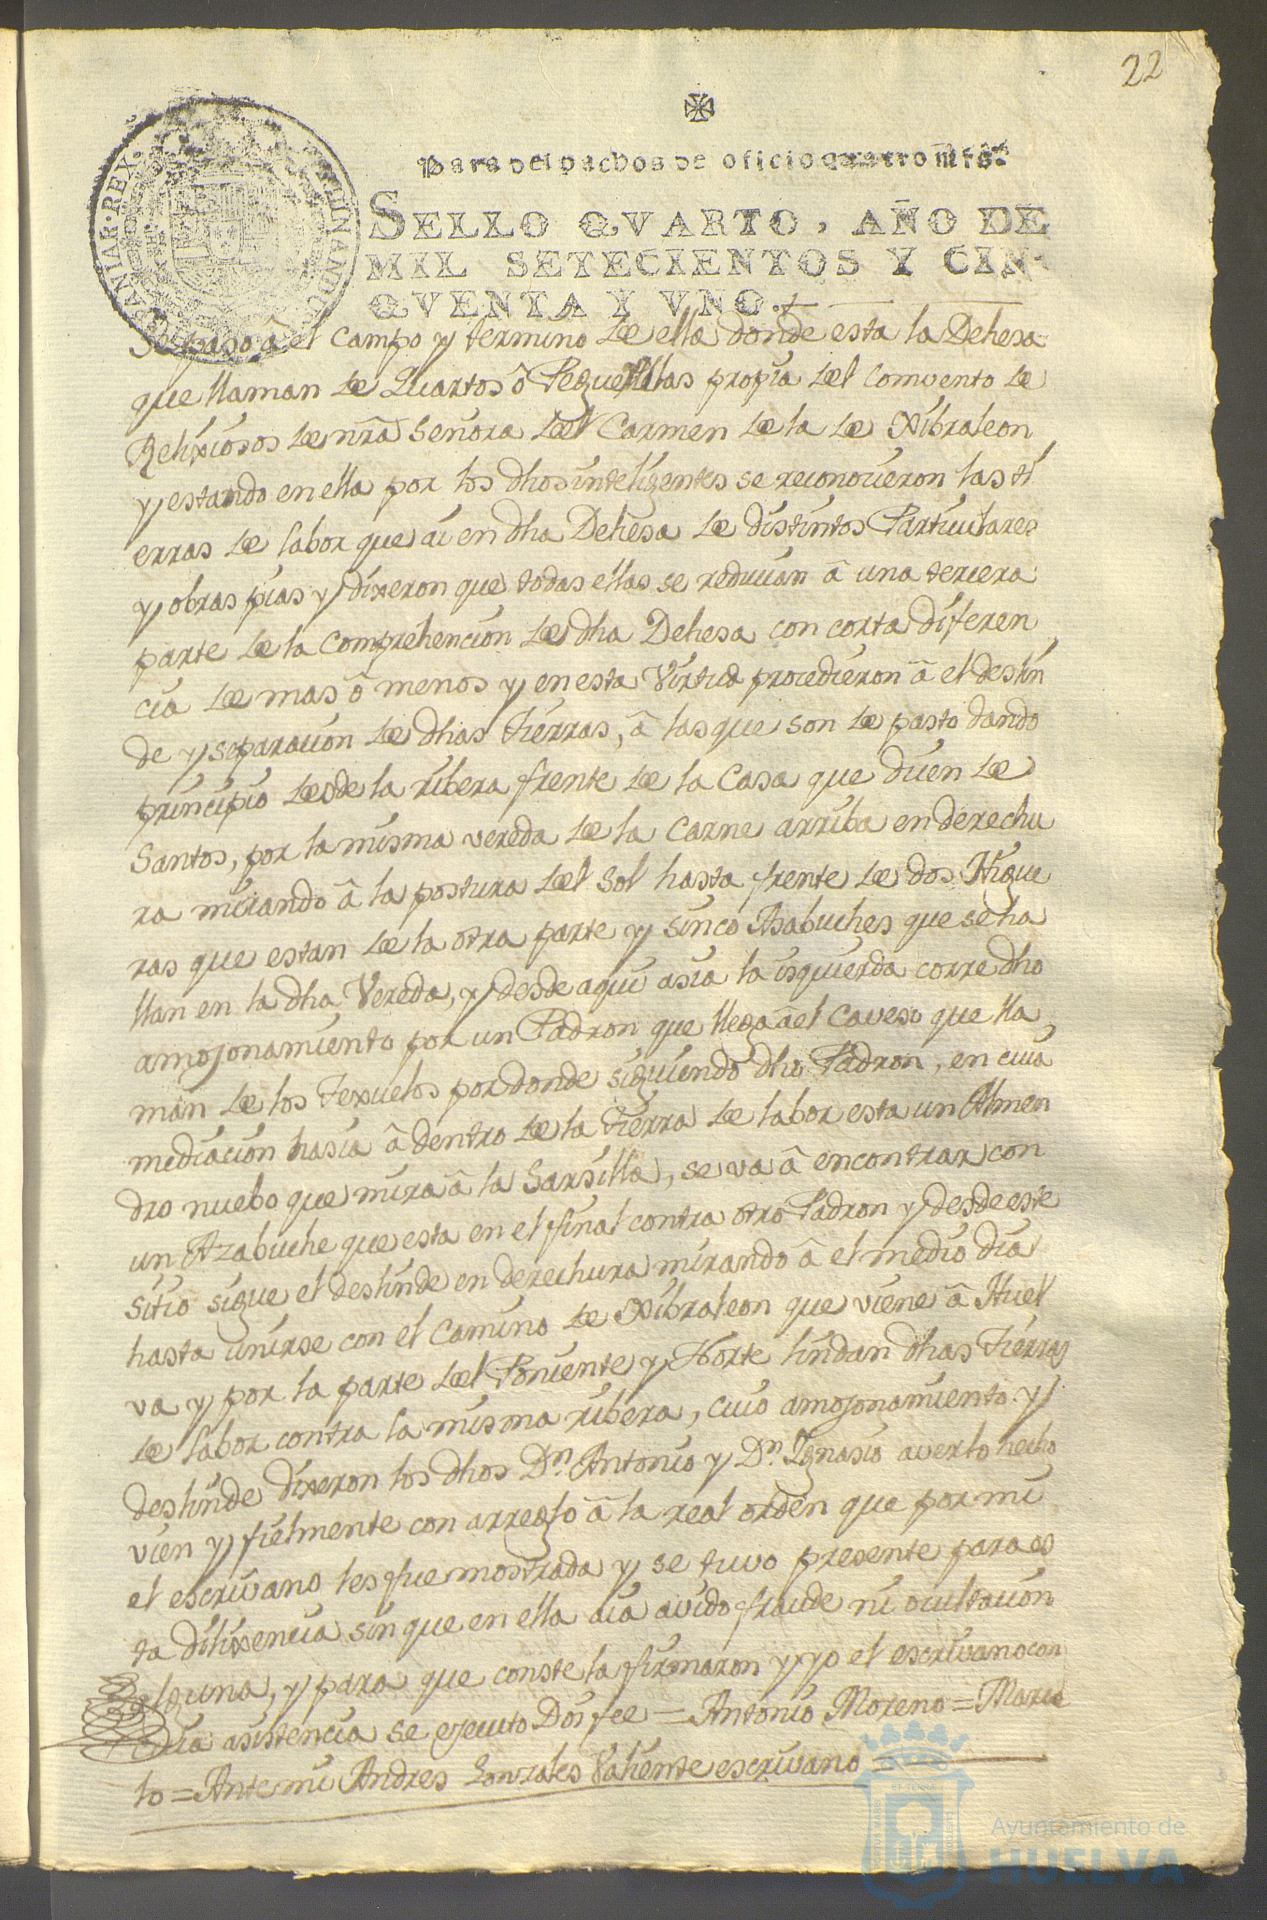 22
Para despachos de oficio quatro mrs.
SELLO QVARTO, AÑO DE
MIL SETECIENTOS Y CIN-
QVENTA Y VNO.
Se paso â el campo y termino de ella donde esta la Dehesa
que llaman de Quartos ô Peguerillas propia del comvento de
Relixiosos de nrã Señora del Carmen de la de Xibraleon
y estando en ella por los dhos inteligentes se reconocieron las ti
erras de labor que ai en dha Dehesa de distintos Particulares
y obras pias y dixeron que todas ellas se reducian â una tercera
parte de la comprehencion de dha Dehesa con corta diferen
cia de mas ô menos y en esta Virtud procedieron â el deslin
de y separacion de dhas tierras, â las que son de pasto dando
principio desde la ribera frente de la Casa que dicen de
Santos, por la misma vereda de la Carne arriba en derechu
ra mirando â la postura del sol hasta frente de dos Higue
ras que estan de la otra parte y sinco Asabuches que se ha
llan en la dha Vereda, y desde aqui asia la isquierda corre dho
amojonamiento por un Padron que llega âel Caveso que lla
man de los Texuelos por donde siguiendo dho Padron, en cuia
mediacion hasia â dentro de la tierra de labor esta un Almen
dro nuebo que mira â la Sarsilla, se va â encontrar con
un Azabuche que esta en el final contra otro Padron y desde este
sitio sigue el deslinde en derechura mirando â el medio dia
hasta unirse con el Camino de Xibraleon que viene â Huel
va y por la parte del Poniente y Norte lindan dhas tierras
de labor contra la misma ribera, cuio amojonamiento y
deslinde dixeron los dhos Dn. Antonio y Dn. Ignasio averlo hecho
vien y fielmente con arreglo â la real orden que por mi
el escrivano les fue mostrada y se tuvo presente para es
ta dilixencia sin que en ella aia avido fraude ni ocultacion
alguna, y para que conste la firmaron y yo el escrivano con
cuia asistencia se ejecuto Doi fee = Antonio Moreno = Marce
lo = Ante mi Andres Gonzales Valiente escrivano =
Ayuntamiento de
HUELVA